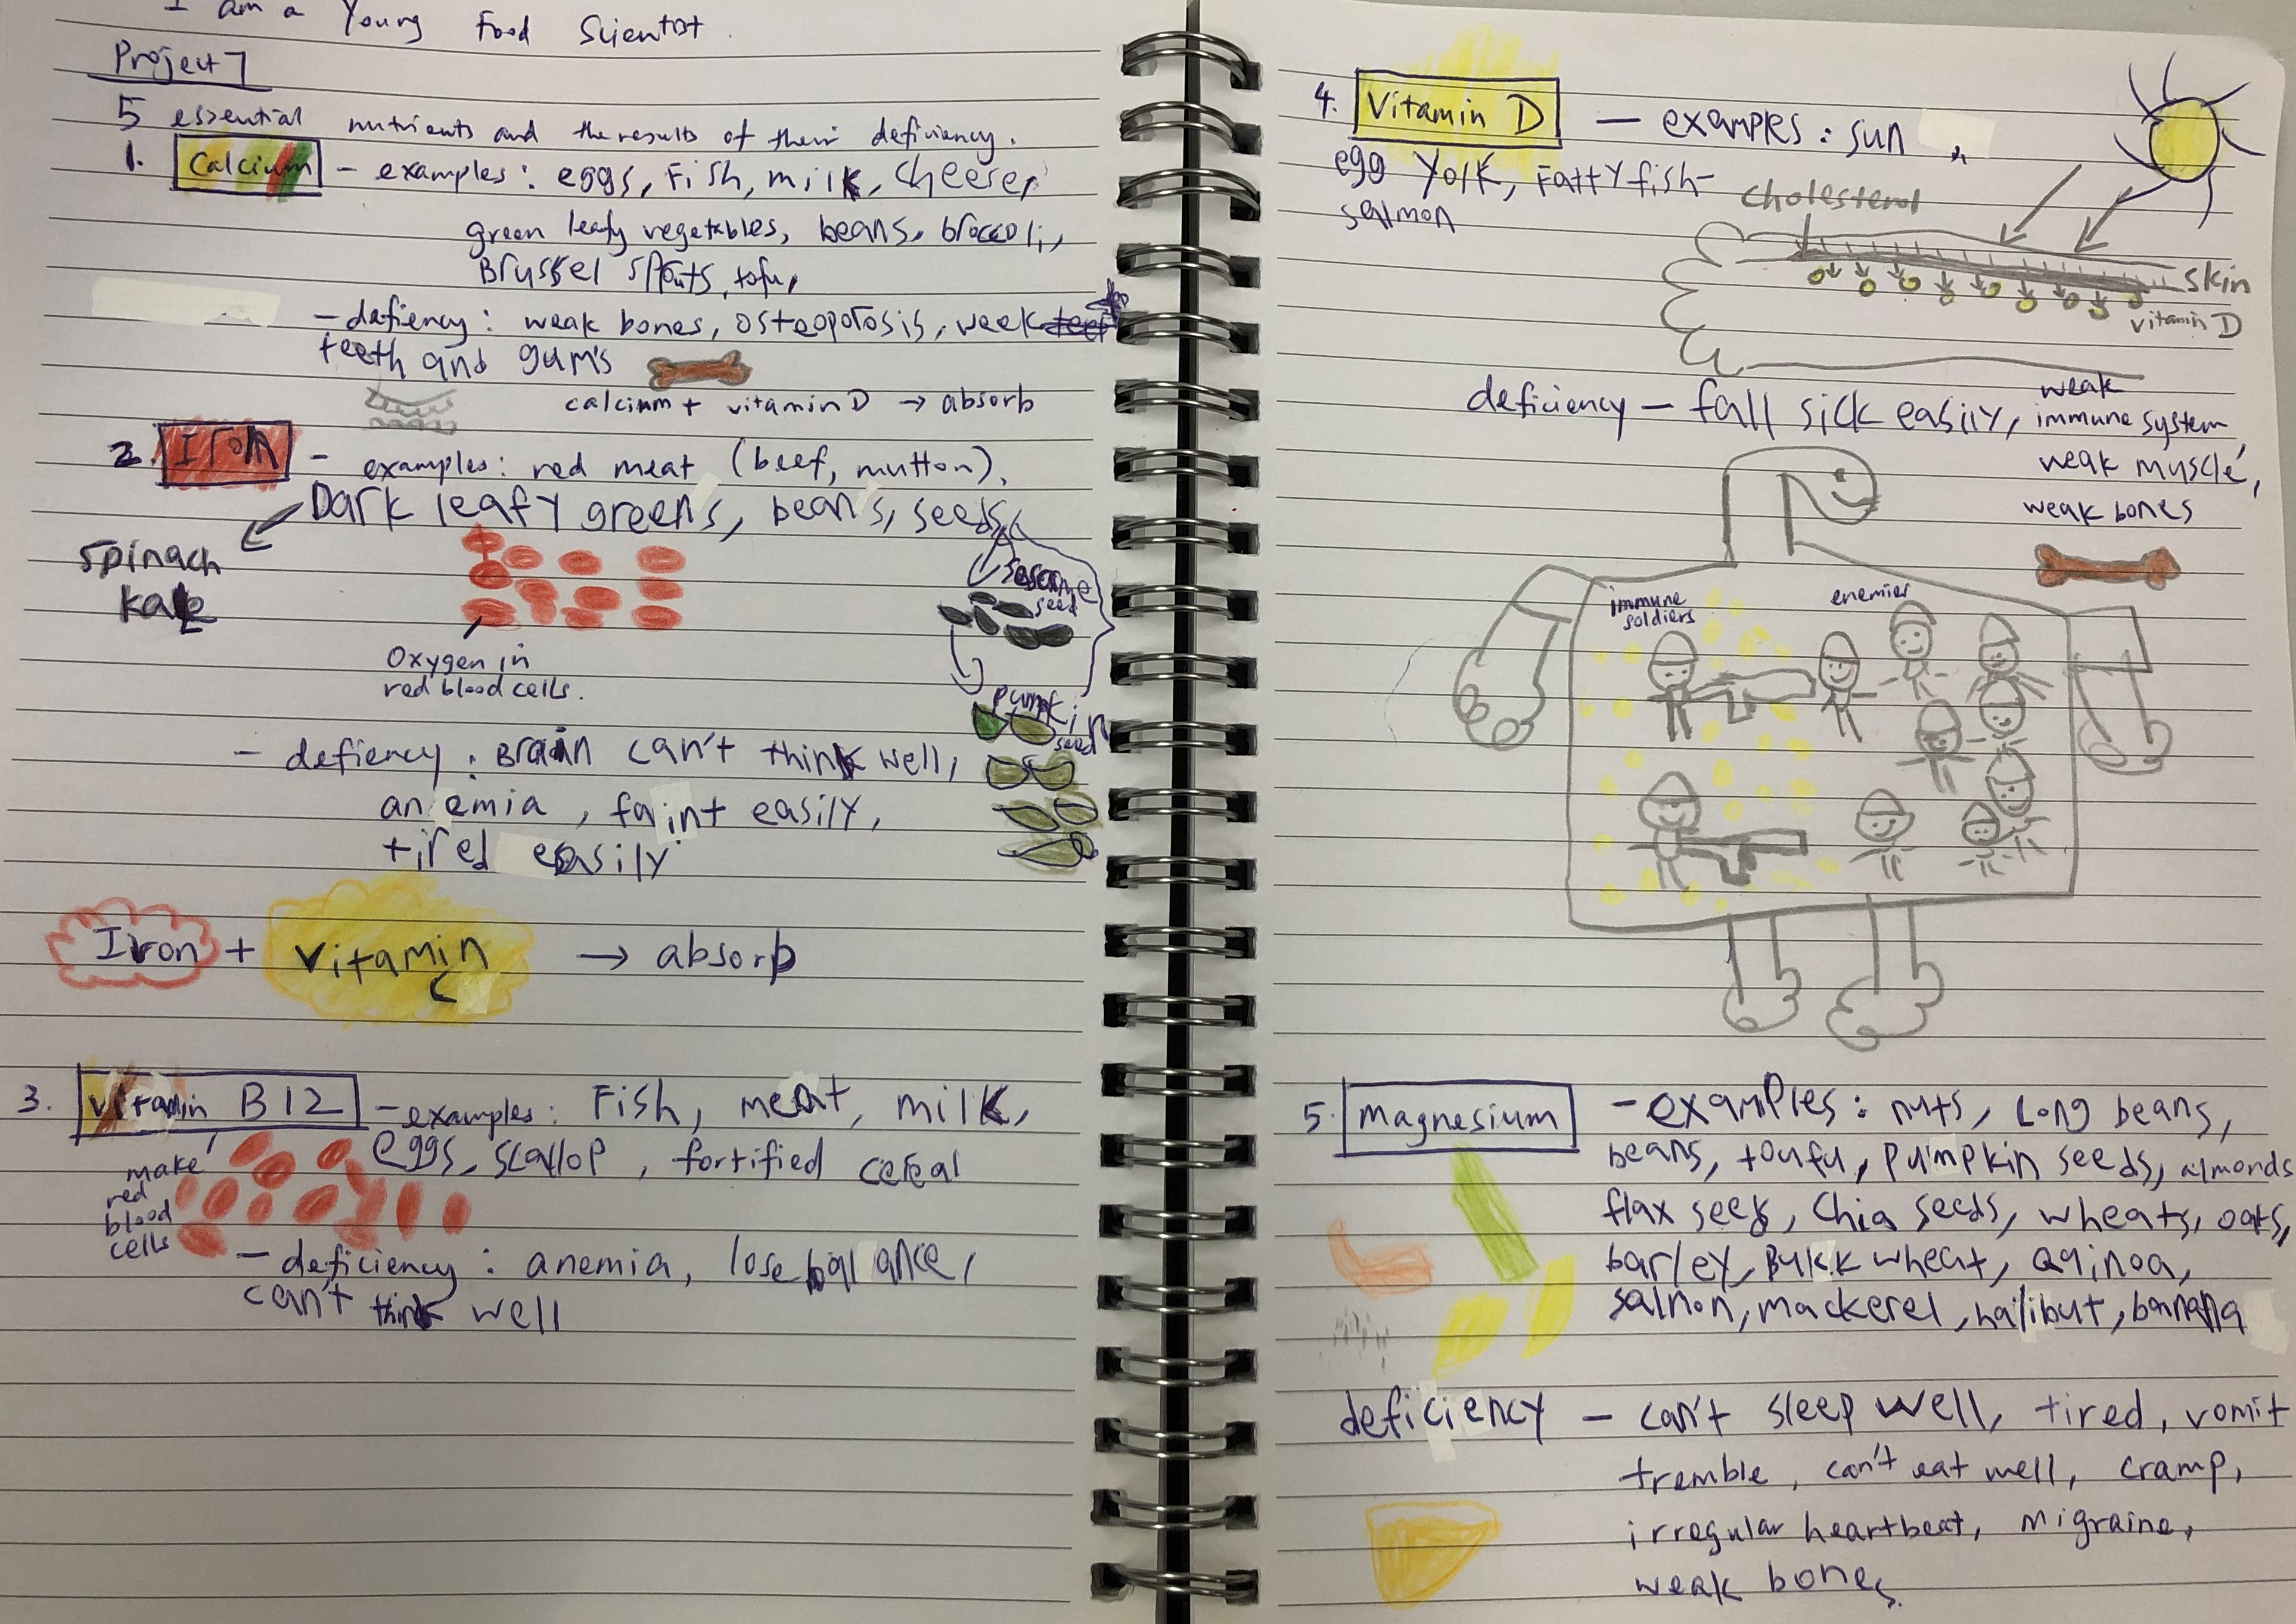 I am a Young Food Scientist.
Project 7
5 essential nutrients and the results of their deficiency.
1. Calcium - examples: eggs, Fish, milk, cheese,
green leafy vegetables, beans, broccoli,
Brussel sprouts, tofu,
- defiency: weak bones, osteoporosis, week
teeth and gum's
calcium + vitamin D → absorb
2. Iron - examples: red meat (beef, mutton),
Dark leafy greens, beans, seeds
spinach
kale
sesame
seed
Oxygen in
red blood cells.
pumpkin
seed
- defiency: Brain can't think well,
anemia, faint easily,
tired easily
Iron + Vitamin C → absorb
3. Vitamin B12 - examples: Fish, meat, milk,
eggs, scallop, fortified cereal
make
red
blood
cells
- deficiency: anemia, lose balance,
can't think well
4. Vitamin D - examples: sun,
egg yolk, Fatty fish-
salmon
cholesterol
skin
vitamin D
deficiency - fall sick easily, weak
immune system,
weak muscle,
weak bones
immune
soldiers
enemies
5. Magnesium - examples: nuts, Long beans,
beans, toufu, pumpkin seeds, almonds
flax seeds, chia seeds, wheats, oats,
barley, Bukk wheat, Qqinoa,
salmon, mackerel, halibut, bannana
deficiency - can't sleep well, tired, vomit
tremble, can't eat well, cramp,
irregular heartbeat, migraine,
weak bones.